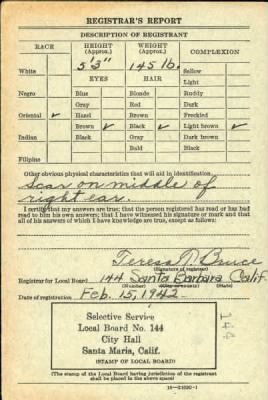 REGISTRAR'S REPORT
DESCRIPTION OF REGISTRANT
RACE HEIGHT (Approx.) WEIGHT (Approx.) COMPLEXION
White 5'3" 145 lb. Sallow
EYES HAIR Light
Negro Blue Blonde Ruddy
Gray Red Dark
Oriental ✓ Hazel Brown Freckled
Brown ✓ Black ✓ Light brown ✓
Indian Black Gray Dark brown
Bald Black
Filipino
Other obvious physical characteristics that will aid in identification
Scar on middle of
right ear.
I certify that my answers are true; that the person registered has read or has had
read to him his own answers; that I have witnessed his signature or mark and that
all of his answers of which I have knowledge are true, except as follows:
Teresa N. Bruce
(Signature of registrar)
Registrar for Local Board 144 Santa Barbara Calif.
(Number) (City or county) (State)
Date of registration Feb. 15, 1942
Selective Service
Local Board No. 144
City Hall
Santa Maria, Calif.
(STAMP OF LOCAL BOARD)
144
(The stamp of the Local Board having jurisdiction of the registrant
shall be placed in the above space)
16—21630-1